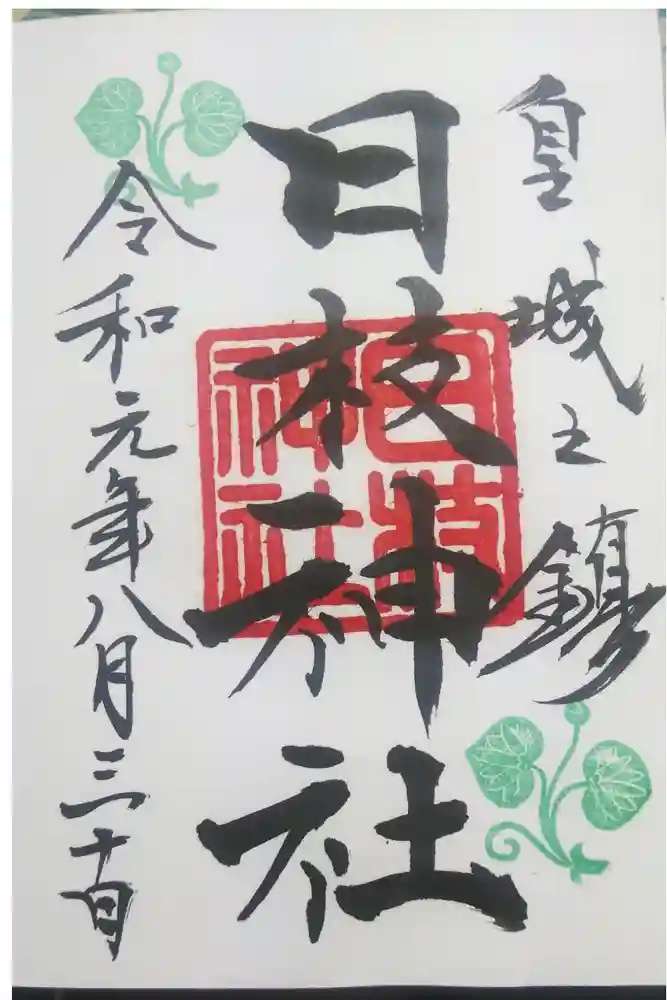 皇城之鎮
日枝神社
日枝神社
令和元年八月三十日